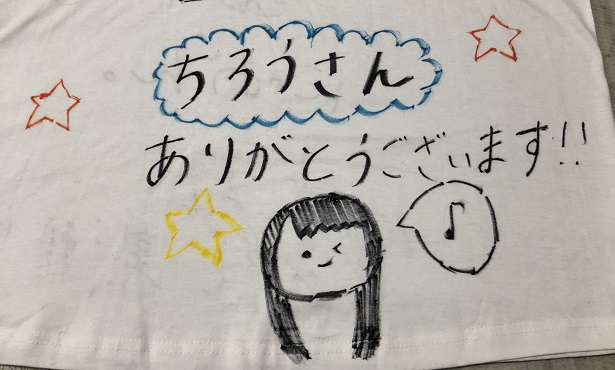 ちろうさん
ありがとうございます!!
♪